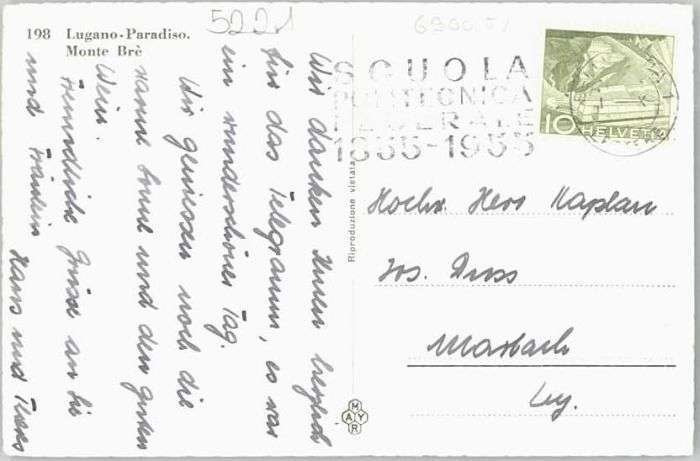 198 Lugano-Paradiso.
Monte Brè
5221
Wir danken Ihnen herzlich
für das Telegramm, es war
ein wunderschöner Tag.
Wir geniessen noch die
warme Sonne und den guten
Wein.
Freundliche Grüsse an Sie
und Fräulein
Hans und
Riproduzione vietata
MAYR
SCUOLA
POLITECNICA
FEDERALE
1855-1955
10 HELVETIA
Hochw. Herr Kaplan
Jos.
Marbach
Luz.